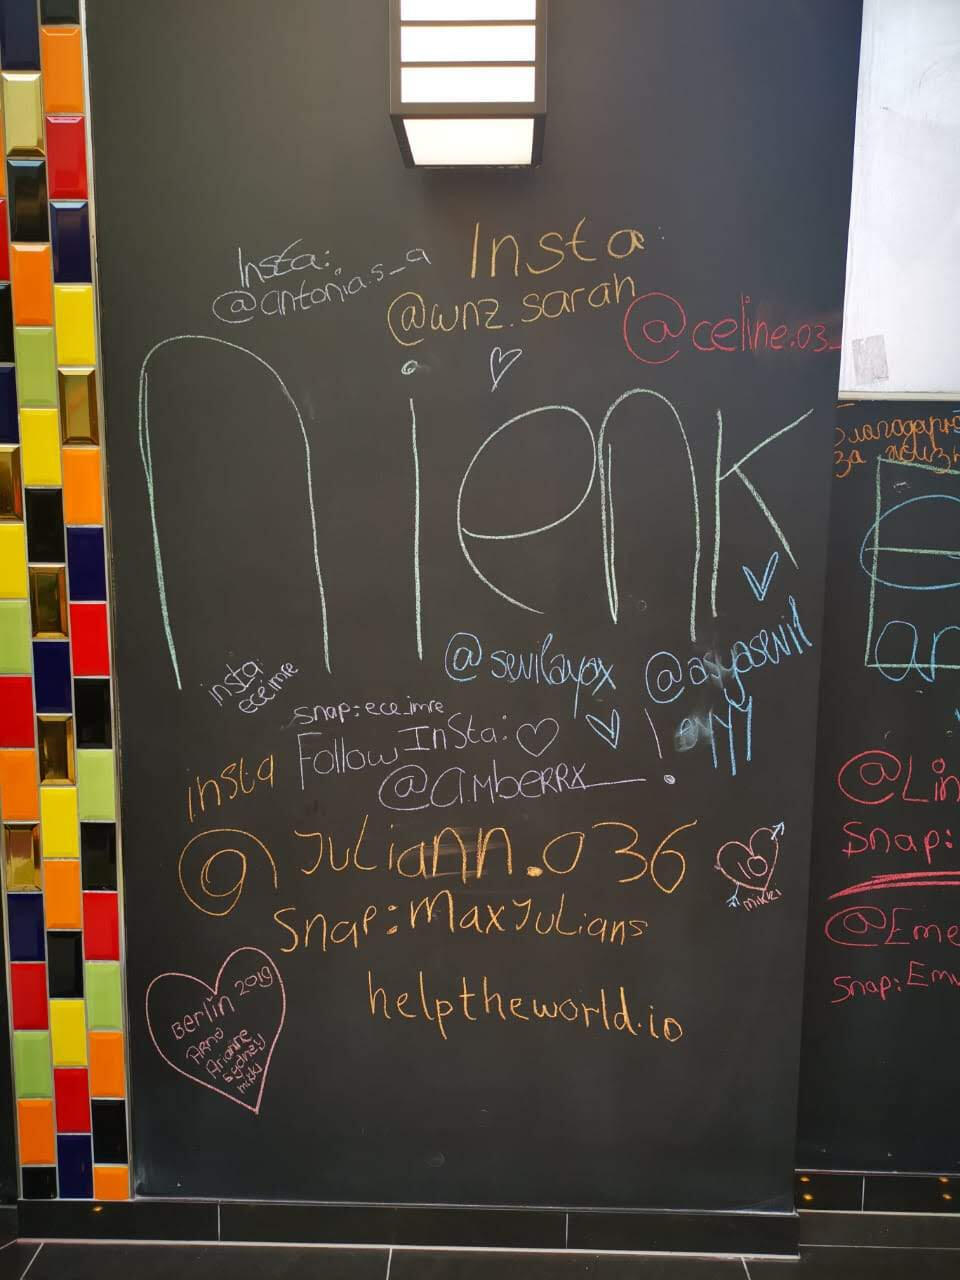 Insta:
@antonia.s_a
Insta:
@wnz.sarah
@celine.03_
nienk
@sevilayox
@asyasevil
eyyy
insta:
ece.imre
snap: ece_imre
Follow Insta:
@amberrx__!
insta
@Juliann.036
Snap: MaxJulians
10
mikki
helptheworld.io
Berlin 2019
Arno
Arianne
Sydney
mikki
Благодарю
за жизн
e
an
@Lin
Snap:
@Eme
Snap: Em